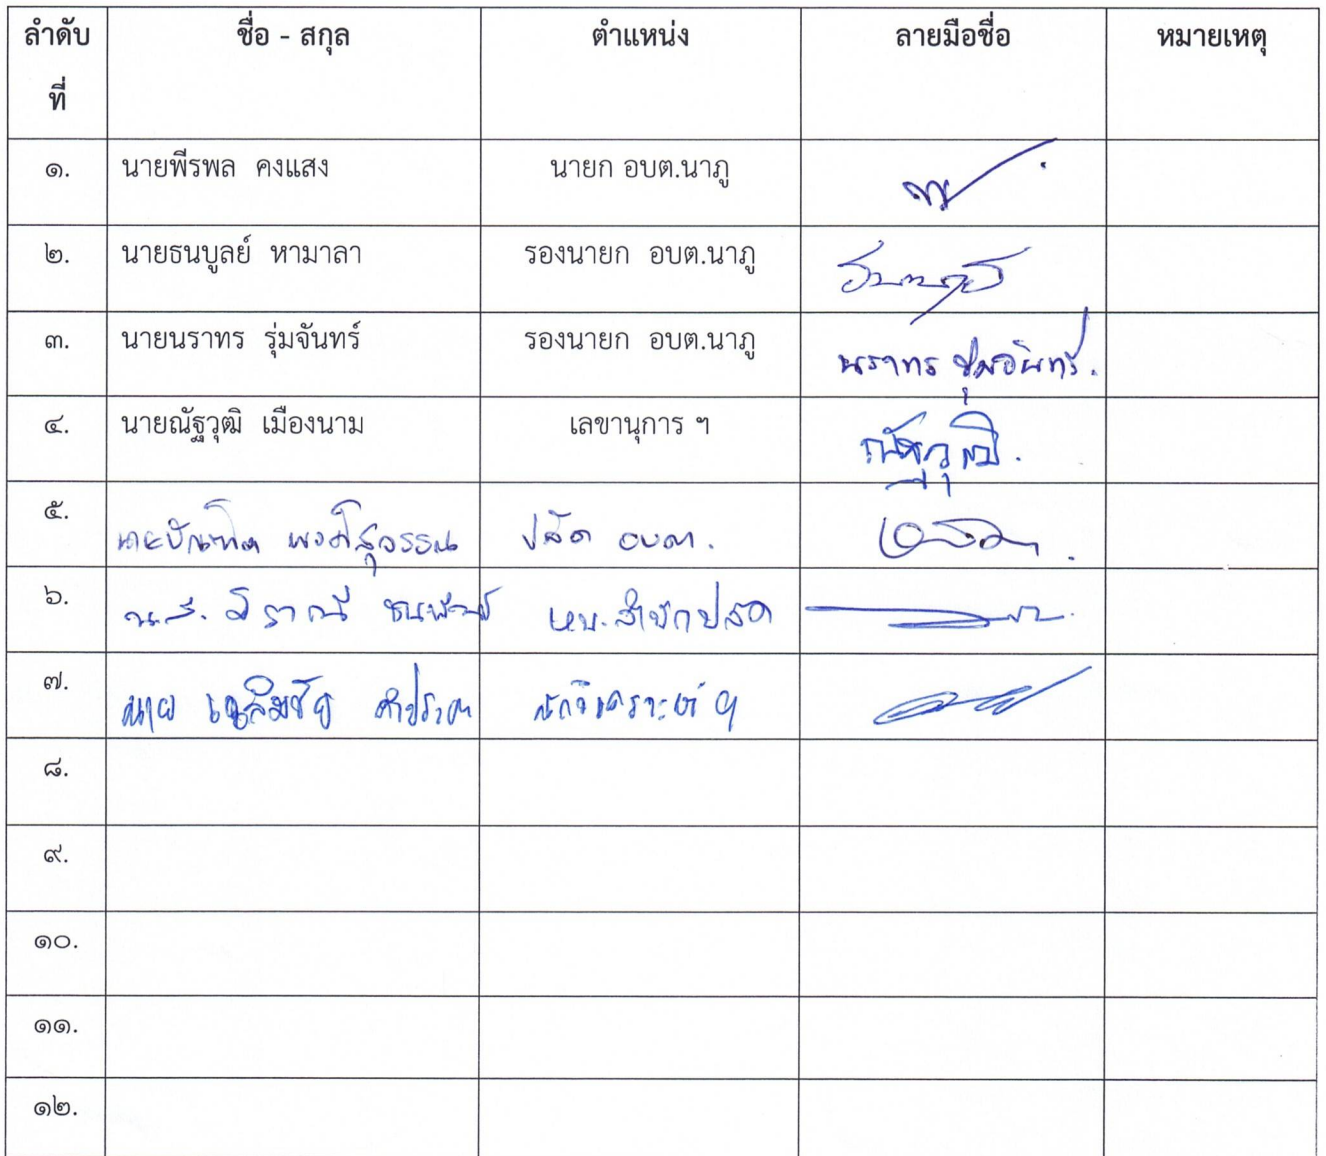 ลำดับ ชื่อ - สกุล ตำแหน่ง ลายมือชื่อ หมายเหตุ
ที่
๑. นายพีรพล คงแสง นายก อบต.นาภู
๒. นายธนบูลย์ หามาลา รองนายก อบต.นาภู
๓. นายนราทร รุ่มจันทร์ รองนายก อบต.นาภู นราทร
๔. นายณัฐวุฒิ เมืองนาม เลขานุการ ฯ ณัฐวุฒิ.
๕. นายบัณฑิต พงศ์สุวรรณ ปลัด อบต.
๖. น.ส. หน.สำนักปลัด
๗. นาย เฉลิมชัย นักวิเคราะห์ ฯ
๘.
๙.
๑๐.
๑๑.
๑๒.